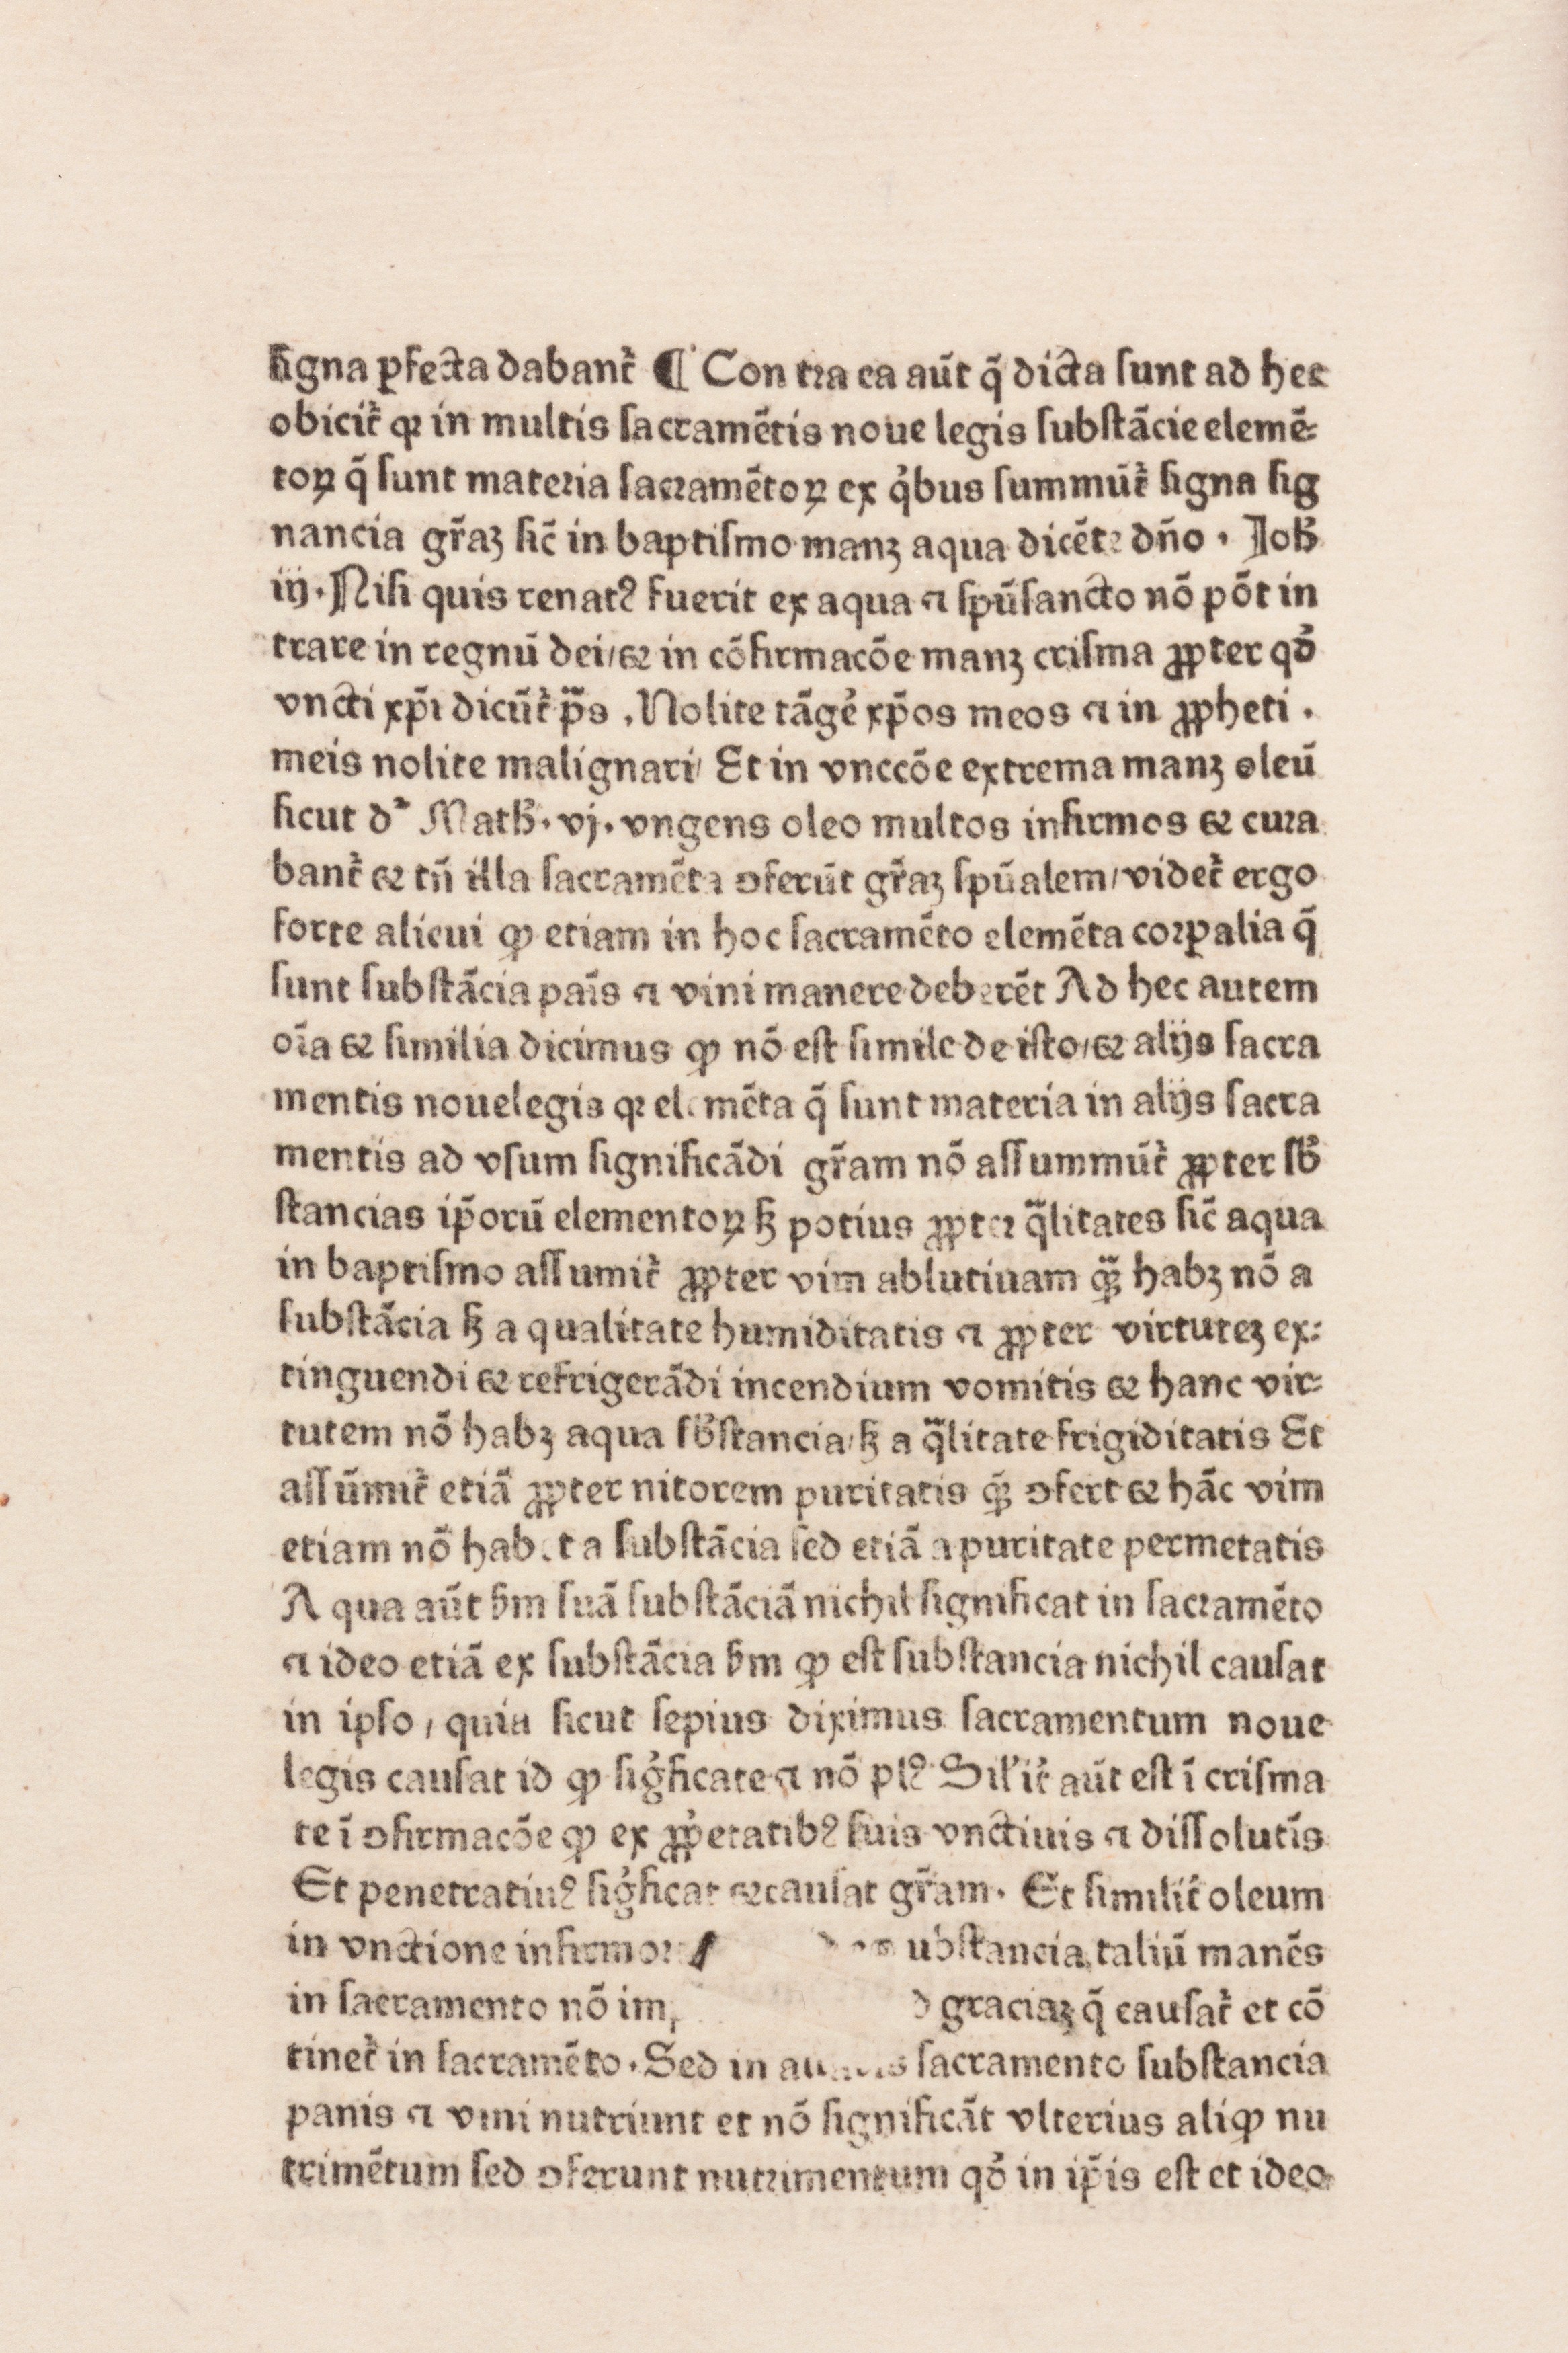 signa ꝑfecta dabant᷑ ¶ Con tra ea aūt q̄ dicta sunt ad hec
obicit᷑ qꝛ in multis sacramētis noue legis substācie elemē⸗
toꝝ q̄ sunt materia sacramētoꝝ ex qͥbus summūt᷑ signa sig
nancia gr̄aꝫ sic̄ in baptismo manꝫ aqua dicēte dn̄o . Joh̄
iij. Nisi quis renatꝰ fuerit ex aqua ⁊ spūsancto nō pōt in
trare in regnū dei/ ⁊ in cōfirmacōe manꝫ crisma ꝓpter qď
vncti xp̄i dicūt᷑ p̄s . Nolite tāge᷑ xp̄os meos ⁊ in ꝓpheti .
meis nolite malignari/ Et in vnccōe extrema manꝫ oleū
sicut dꝛ Math̄. vj. vngens oleo multos infirmos ⁊ cura
bant᷑ ⁊ tn̄ illa sacramēta ꝯferūt gr̄aꝫ spūalem/ videt᷑ ergo
forte alicui ꝙ etiam in hoc sacramēto elemēta corꝑalia q̄
sunt substācia pāis ⁊ vini manere deberēt Ad hec autem
oīa ⁊ similia dicimus ꝙ nō est simile de isto/ ⁊ alijs sacra
mentis nouelegis qꝛ elemēta q̄ sunt materia in alijs sacra
mentis ad vsum significādi gr̄am nō assummūt᷑ ꝓpter sb̄
stancias ip̄orū elementoꝝ sꝫ potius ꝓpter q̄litates sic̄ aqua
in baptismo assumit᷑ ꝓpter vim ablutiuam quā habꝫ nō a
substācia sꝫ a qualitate humiditatis ⁊ ꝓpter virtuteꝫ ex⸗
tinguendi ⁊ refrigerādi incendium vomitis ⁊ hanc vir⸗
tutem nō habꝫ aqua sb̄stancia/ sꝫ a q̄litate frigiditatis Et
assūmit᷑ etiā ꝓpter nitorem puritatis quā ꝯfert ⁊ hāc vim
etiam nō habet a substācia sed etiā a puritate permetatis
A qua aūt ẜm suā substāciā nichil significat in sacramēto
⁊ ideo etiā ex substācia ẜm ꝙ est substancia nichil causat
in ipso / quia sicut sepius diximus sacramentum noue
legis causat id ꝙ sigͥficate ⁊ nō plꝰ Sil'it᷑ aūt est ī crisma
te ī ꝯfirmacōe ꝙ ex ꝓpͥetatibꝰ suis vnctiuis ⁊ dissolutīs
Et penetratiuꝰ sigͥficat ⁊ causat gr̄am . Et similit᷑ oleum
in vnctione infirmoꝝ ubstancia taliū manēs
in sacramento nō im graciaꝫ q̄ causat᷑ et cō
tinet᷑ in sacramēto . Sed in sacramento substancia
panis ⁊ vini nutriunt et nō significāt vlterius aliꝙ nu
trimētum sed ꝯferunt nutrimentum qď in ip̄is est et ideo